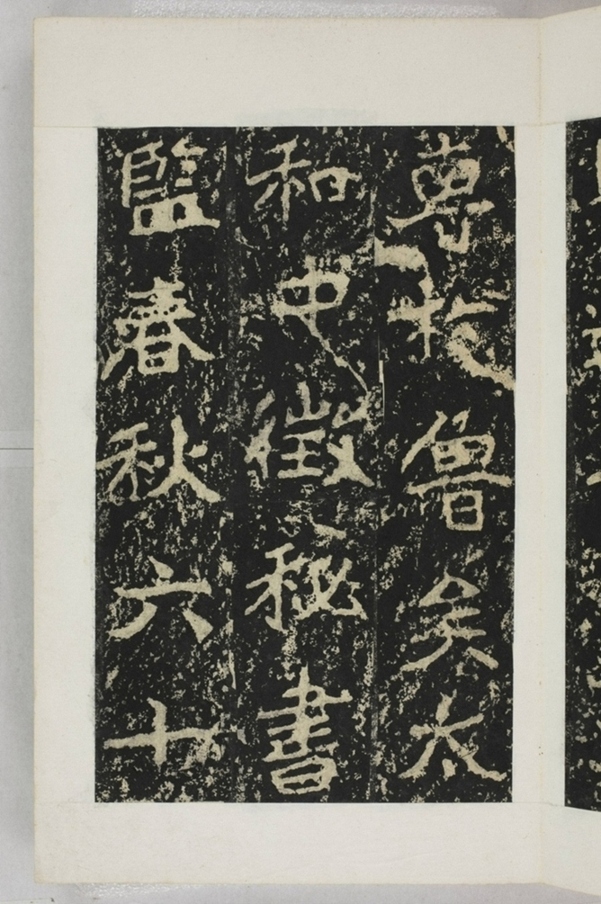 專扵魯矣太
和中徵秘書
監春秋六十